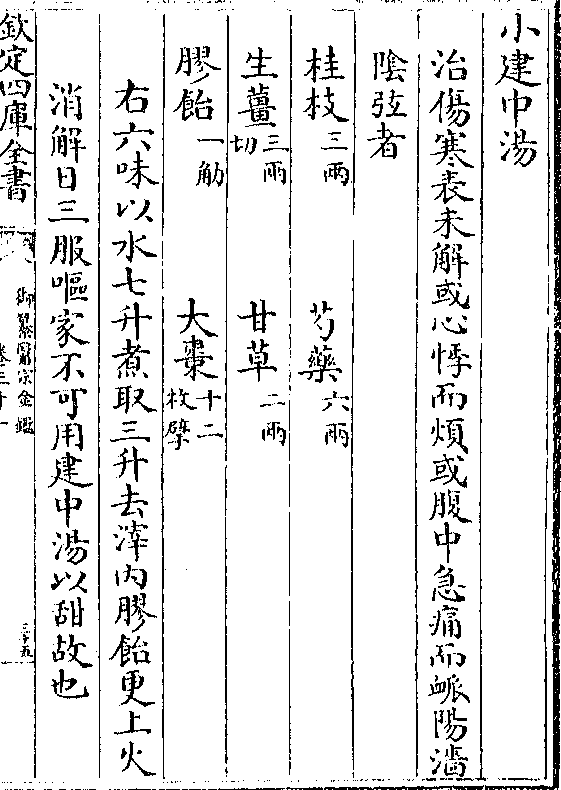 小建中湯
治傷寒表未解或心悸而煩或腹中急痛而脈陽濇
陰弦者
桂枝三兩 芍藥六兩
生薑三兩切 甘草二兩
膠飴一觔 大棗十二枚擘
右六味以水七升煮取三升去滓内膠飴更上火
消解日三服嘔家不可用建中湯以甜故也
欽定四庫全書
御纂醫宗金鑑